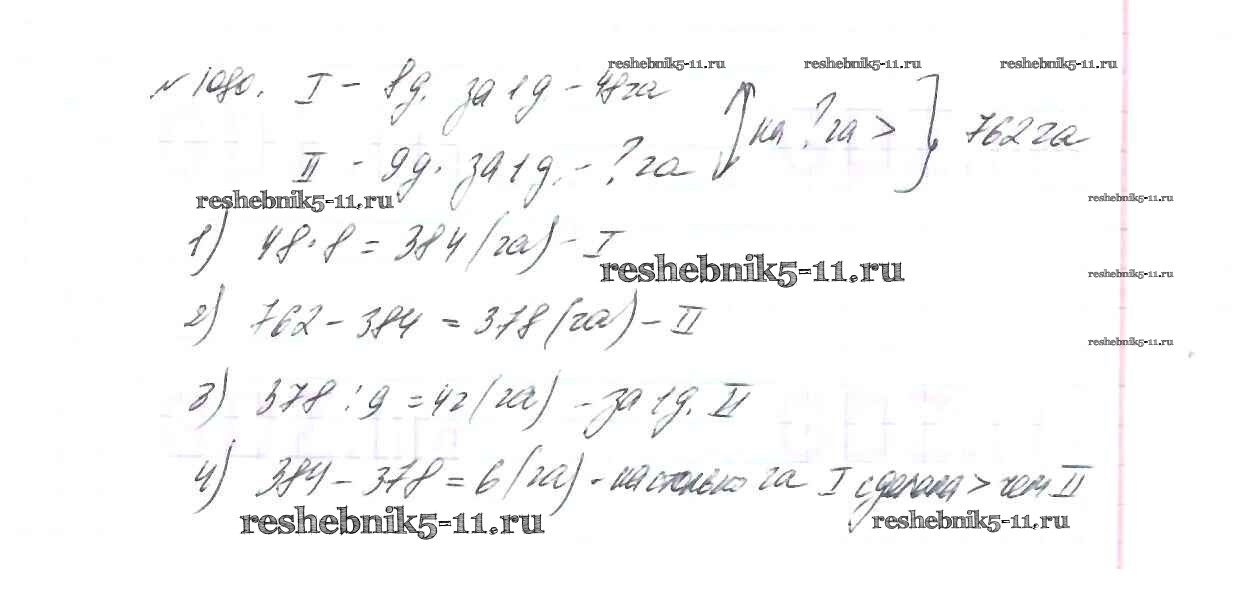 reshebnik5-11.ru reshebnik5-11.ru reshebnik5-11.ru
№1080. I - 8д. за 1д - 48га
на ? га > 762га
II - 9д. за 1д. - ? га
reshebnik5-11.ru reshebnik5-11.ru
1) 48·8 = 384 (га) - I
reshebnik5-11.ru reshebnik5-11.ru
2) 762 - 384 = 378 (га) - II
reshebnik5-11.ru
3) 378 : 9 = 42 (га) - за 1д. II
4) 384 - 378 = 6 (га) - настолько га I сделала > чем II
reshebnik5-11.ru reshebnik5-11.ru